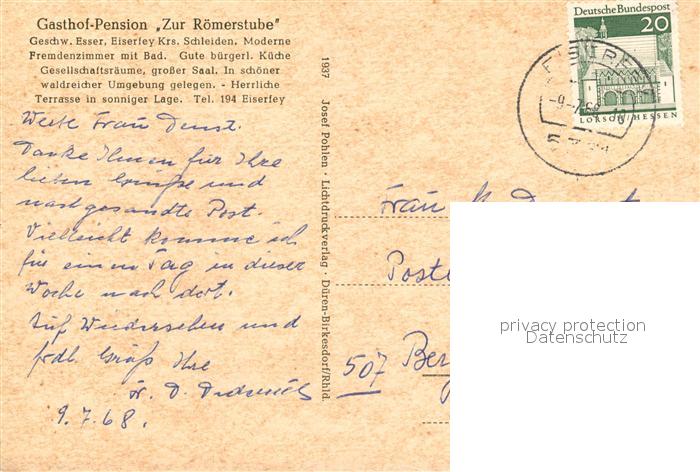 Gasthof-Pension „Zur Römerstube"
Geschw. Esser, Eiserfey Krs. Schleiden. Moderne
Fremdenzimmer mit Bad. Gute bürgerl. Küche
Gesellschaftsräume, großer Saal. In schöner
waldreicher Umgebung gelegen. - Herrliche
Terrasse in sonniger Lage. Tel. 194 Eiserfey
Werte Frau Denst.
Danke Ihnen für Ihre
lieben Grüße und
nachgesandte Post.
Vielleicht komme ich
für einen Tag in dieser
Woche nach dort.
Auf Wiedersehen und
frdl. Grüß Ihre
9.7.68.
1937 Josef Pohlen · Lichtdruckverlag · Düren-Birkesdorf/Rhld.
Deutsche Bundespost
20
LORSCH/HESSEN
Frau
507 Ber
privacy protection
Datenschutz